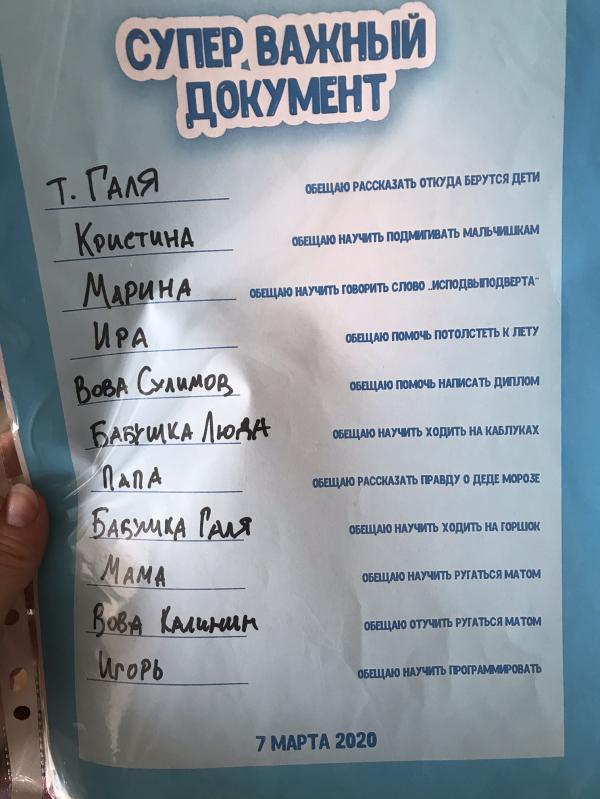 СУПЕР ВАЖНЫЙ
ДОКУМЕНТ
Т. ГАЛЯ ОБЕЩАЮ РАССКАЗАТЬ ОТКУДА БЕРУТСЯ ДЕТИ
КРИСТИНА ОБЕЩАЮ НАУЧИТЬ ПОДМИГИВАТЬ МАЛЬЧИШКАМ
МАРИНА ОБЕЩАЮ НАУЧИТЬ ГОВОРИТЬ СЛОВО „ИСПОДВЫПОДВЕРТА“
ИРА ОБЕЩАЮ ПОМОЧЬ ПОТОЛСТЕТЬ К ЛЕТУ
ВОВА СУЛИМОВ ОБЕЩАЮ ПОМОЧЬ НАПИСАТЬ ДИПЛОМ
БАБУШКА ЛЮДА ОБЕЩАЮ НАУЧИТЬ ХОДИТЬ НА КАБЛУКАХ
ПАПА ОБЕЩАЮ РАССКАЗАТЬ ПРАВДУ О ДЕДЕ МОРОЗЕ
БАБУШКА ГАЛЯ ОБЕЩАЮ НАУЧИТЬ ХОДИТЬ НА ГОРШОК
МАМА ОБЕЩАЮ НАУЧИТЬ РУГАТЬСЯ МАТОМ
ВОВА КАЛИНИН ОБЕЩАЮ ОТУЧИТЬ РУГАТЬСЯ МАТОМ
ИГОРЬ ОБЕЩАЮ НАУЧИТЬ ПРОГРАММИРОВАТЬ
7 МАРТА 2020